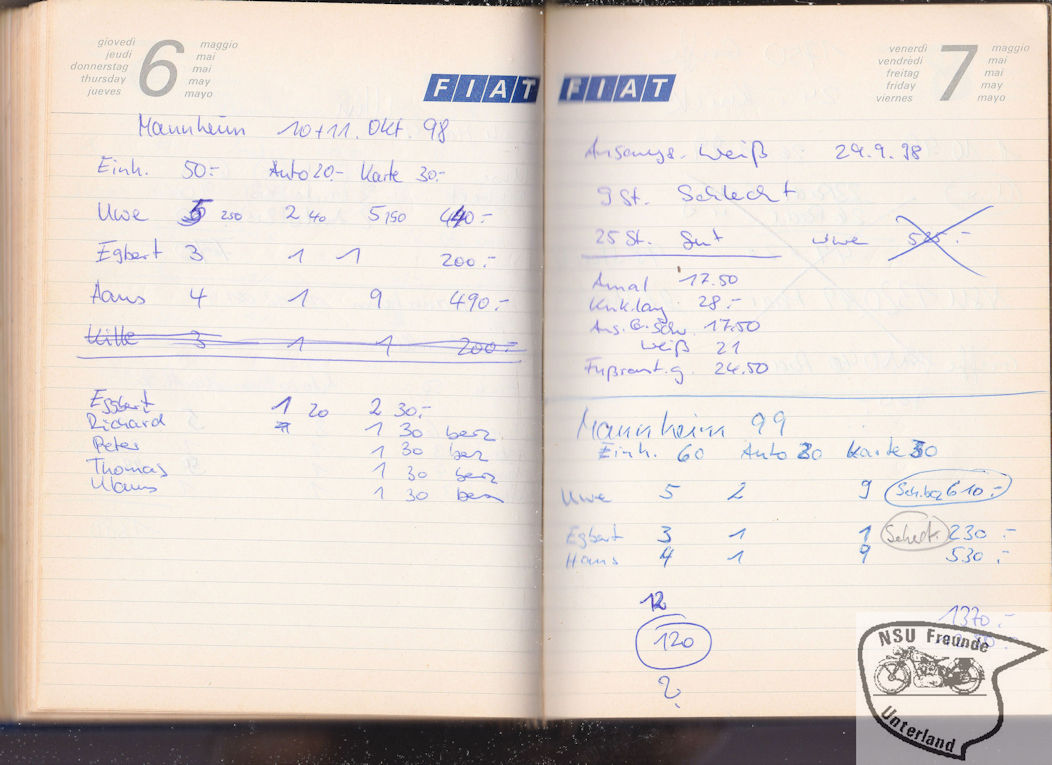 giovedì
jeudi
donnerstag
thursday
jueves
6
maggio
mai
mai
may
mayo
FIAT
Mannheim 10+11. Okt. 98
Einh. 50.- Auto 20.- Karte 30.-
Uwe 5 250 2 40 5 150 440.-
Egbert 3 1 1 200.-
Hans 4 1 9 490.-
Kille 3 1 1 200.-
Egbert 1 20 2 30.-
Richard 1 30 berz.
Peter 1 30 berz
Thomas 1 30 berz
Klaus 1 30 berz
venerdì
vendredi
freitag
friday
viernes
7
maggio
mai
mai
may
mayo
FIAT
Ansaugs. Weiß 24.9.98
9 St. Schlecht
25 St. Gut Uwe 525.-
Amal 17.50
28.-
Ans. G. Schw. 17.50
Weiß 21
Fußrast. g. 24.50
Mannheim 99
Einh. 60 Auto 30 Karte 30
Uwe 5 2 9 610.-
Egbert 3 1 1 230.-
Hans 4 1 9 530.-
12
120
?
1370.-
NSU Freunde
Unterland